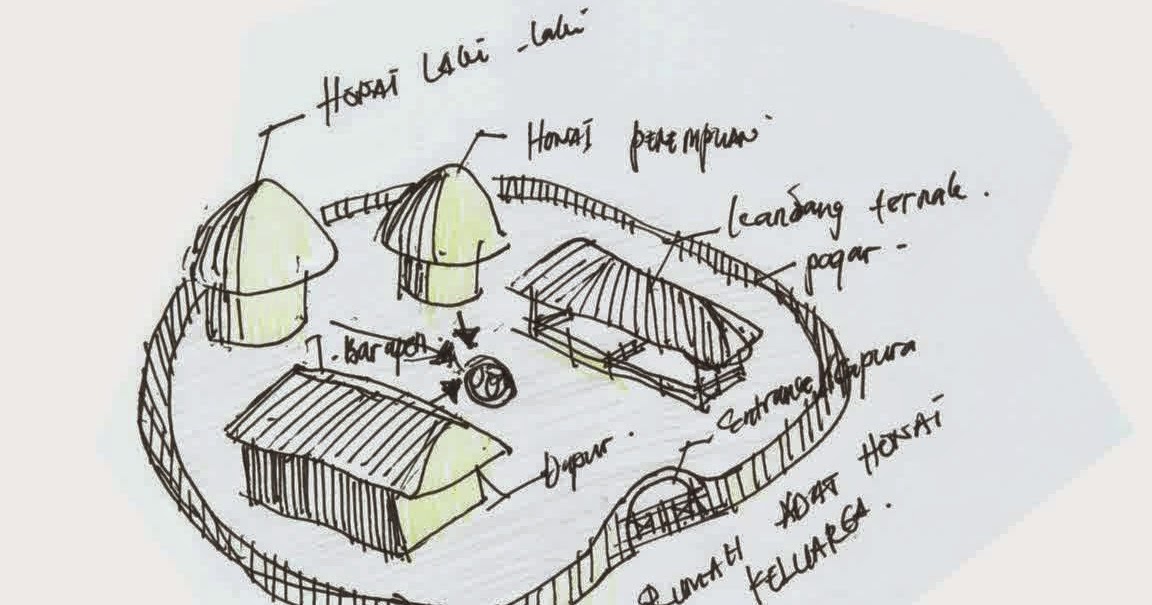 HONAI LAKI - laki
HONAI perempuan
kandang ternak .
pagar -
. Barapen .
Entrance / Gapura
Dapur .
RUMAH ADAT HONAI
KELUARGA .